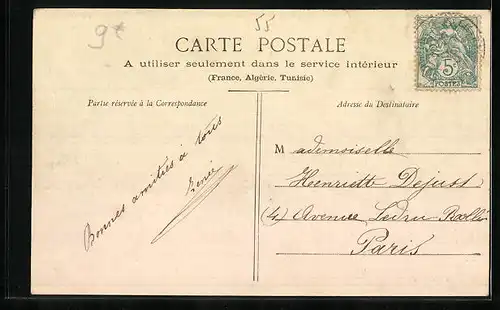 55
CARTE POSTALE
A utiliser seulement dans le service intérieur
(France, Algérie, Tunisie)
5c
POSTES
Partie réservée à la Correspondance
Adresse du Destinataire
Bonnes amitiés à tous
Mademoiselle
Henriette Dejust
Avenue Ledru Rollin
Paris